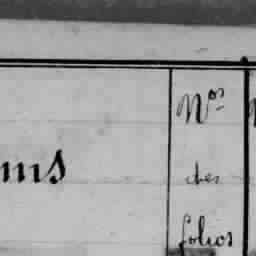 Nos
ms
des
folios